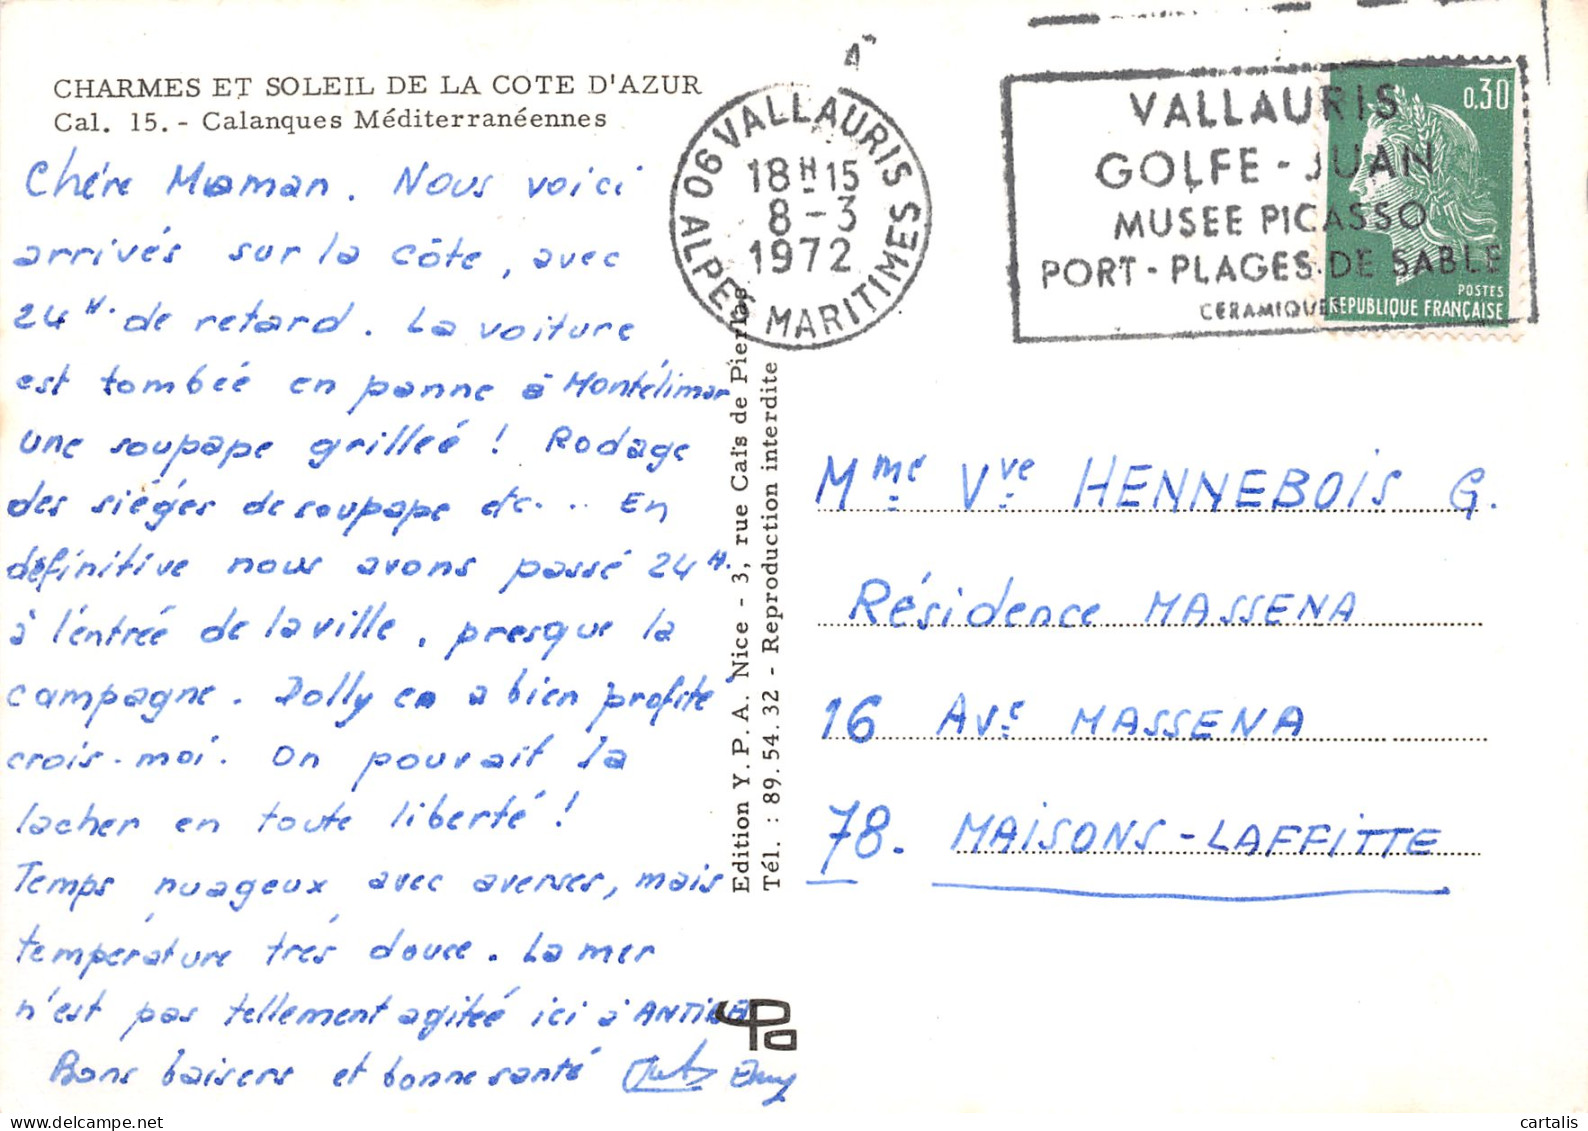 CHARMES ET SOLEIL DE LA COTE D'AZUR
Cal. 15. - Calanques Méditerranéennes
Chére Maman. Nous voici
arrivés sur la côte, avec
24H. de retard. La voiture
est tombeé en panne à Montélimar
une soupape grilleé ! Rodage
des siéges de soupape etc... En
définitive nous avons passé 24H.
à l'entreé de la ville, presque la
campagne. Dolly en a bien profité
crois-moi. On pouvait la
lacher en toute liberté !
Temps nuageux avec averses, mais
température très douce. La mer
n'est pas tellement agiteé ici à ANTIBES
Bons baisers et bonne santé
Edition Y. P. A. Nice - 3, rue Caïs de Pierlas
Tél. : 89.54.32 - Reproduction interdite
06 VALLAURIS
18H15
8-3
1972
ALPES MARITIMES
VALLAURIS
GOLFE-JUAN
MUSEE PICASSO
PORT-PLAGES DE SABLE
CERAMIQUE
0,30
POSTES
REPUBLIQUE FRANÇAISE
Mme Vve HENNEBOIS G.
Résidence MASSENA
16 Ave MASSENA
78. MAISONS-LAFFITTE
ypa
delcampe.net
cartalis